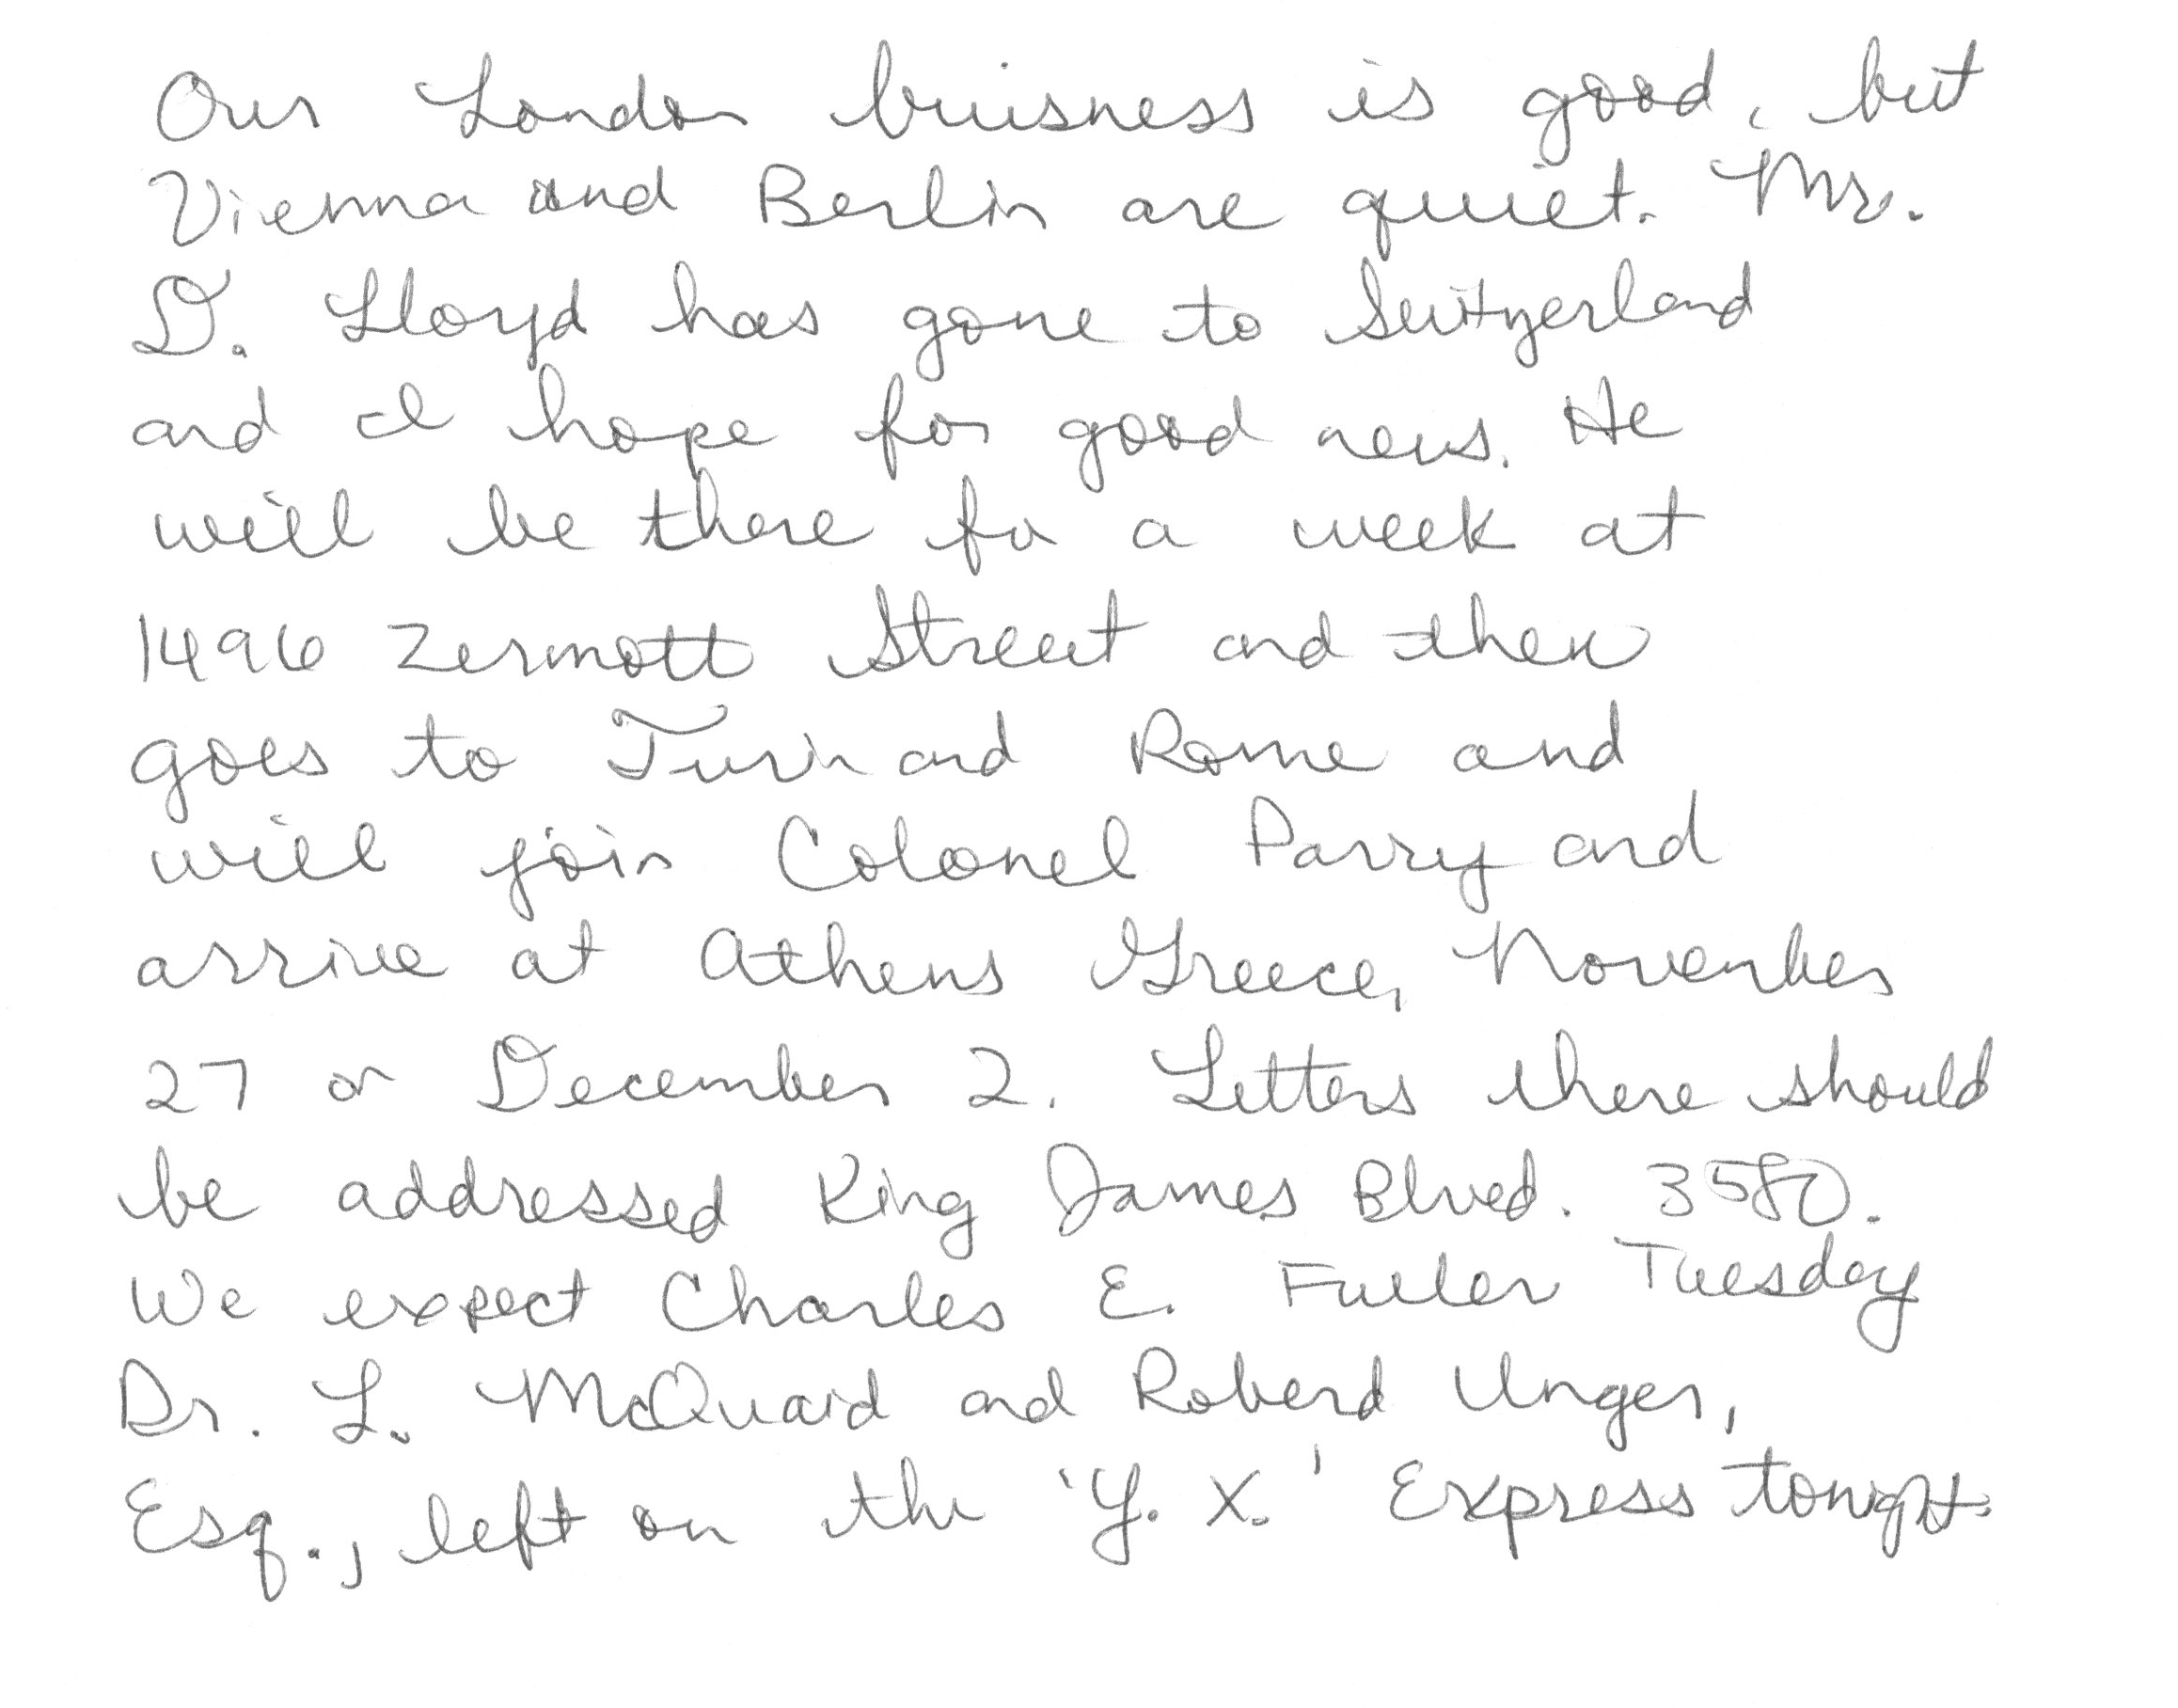 Our London buisness is good, but
Vienna and Berlin are quiet. Mr.
D. Lloyd has gone to Switzerland
and I hope for good news. He
will be there for a week at
1496 Zermott Street and then
goes to Turin and Rome and
will join Colonel Parry and
arrive at Athens Greece, November
27 or December 2. Letters there should
be addressed King James Blvd. 3580.
We expect Charles E. Fuller Tuesday
Dr. L. McQuaid and Roberd Unger,
Esq., left on the 'Y. X.' Express tonight.